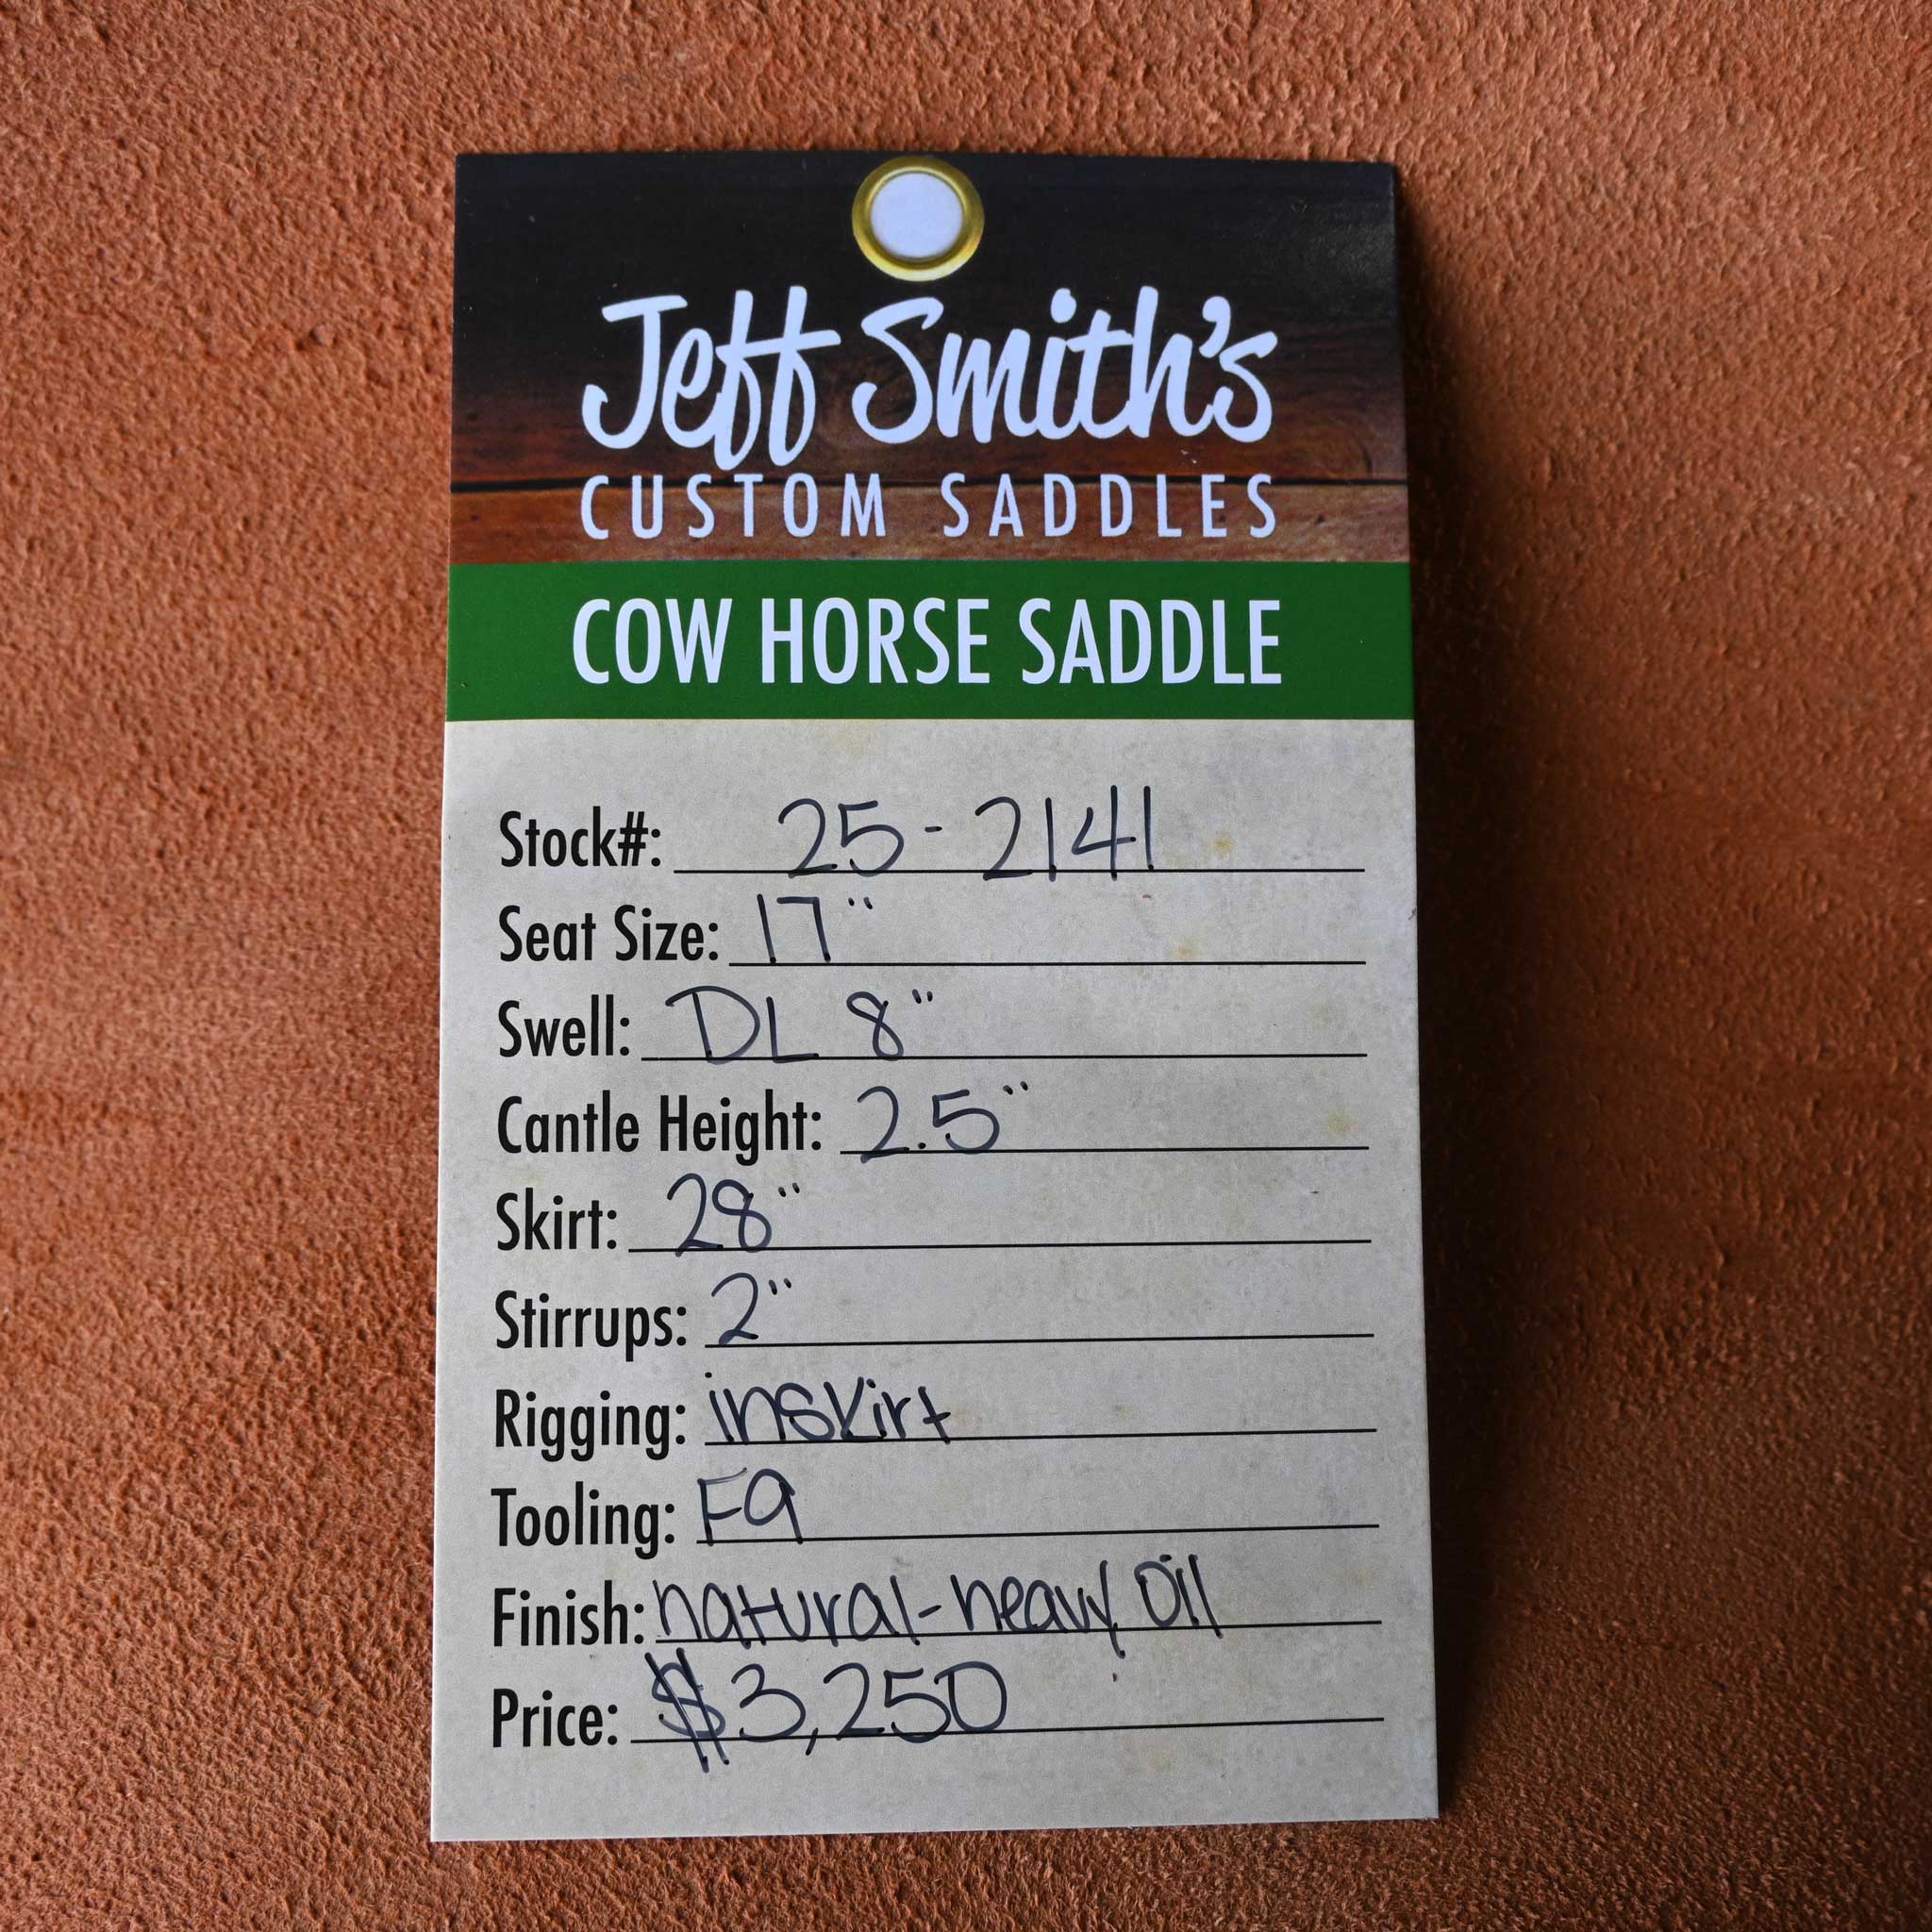 Jeff Smith's
CUSTOM SADDLES
COW HORSE SADDLE
Stock#: 25-2141
Seat Size: 17"
Swell: DL 8"
Cantle Height: 2.5"
Skirt: 28"
Stirrups: 2"
Rigging: inskirt
Tooling: F9
Finish: natural-heavy oil
Price: $3,250